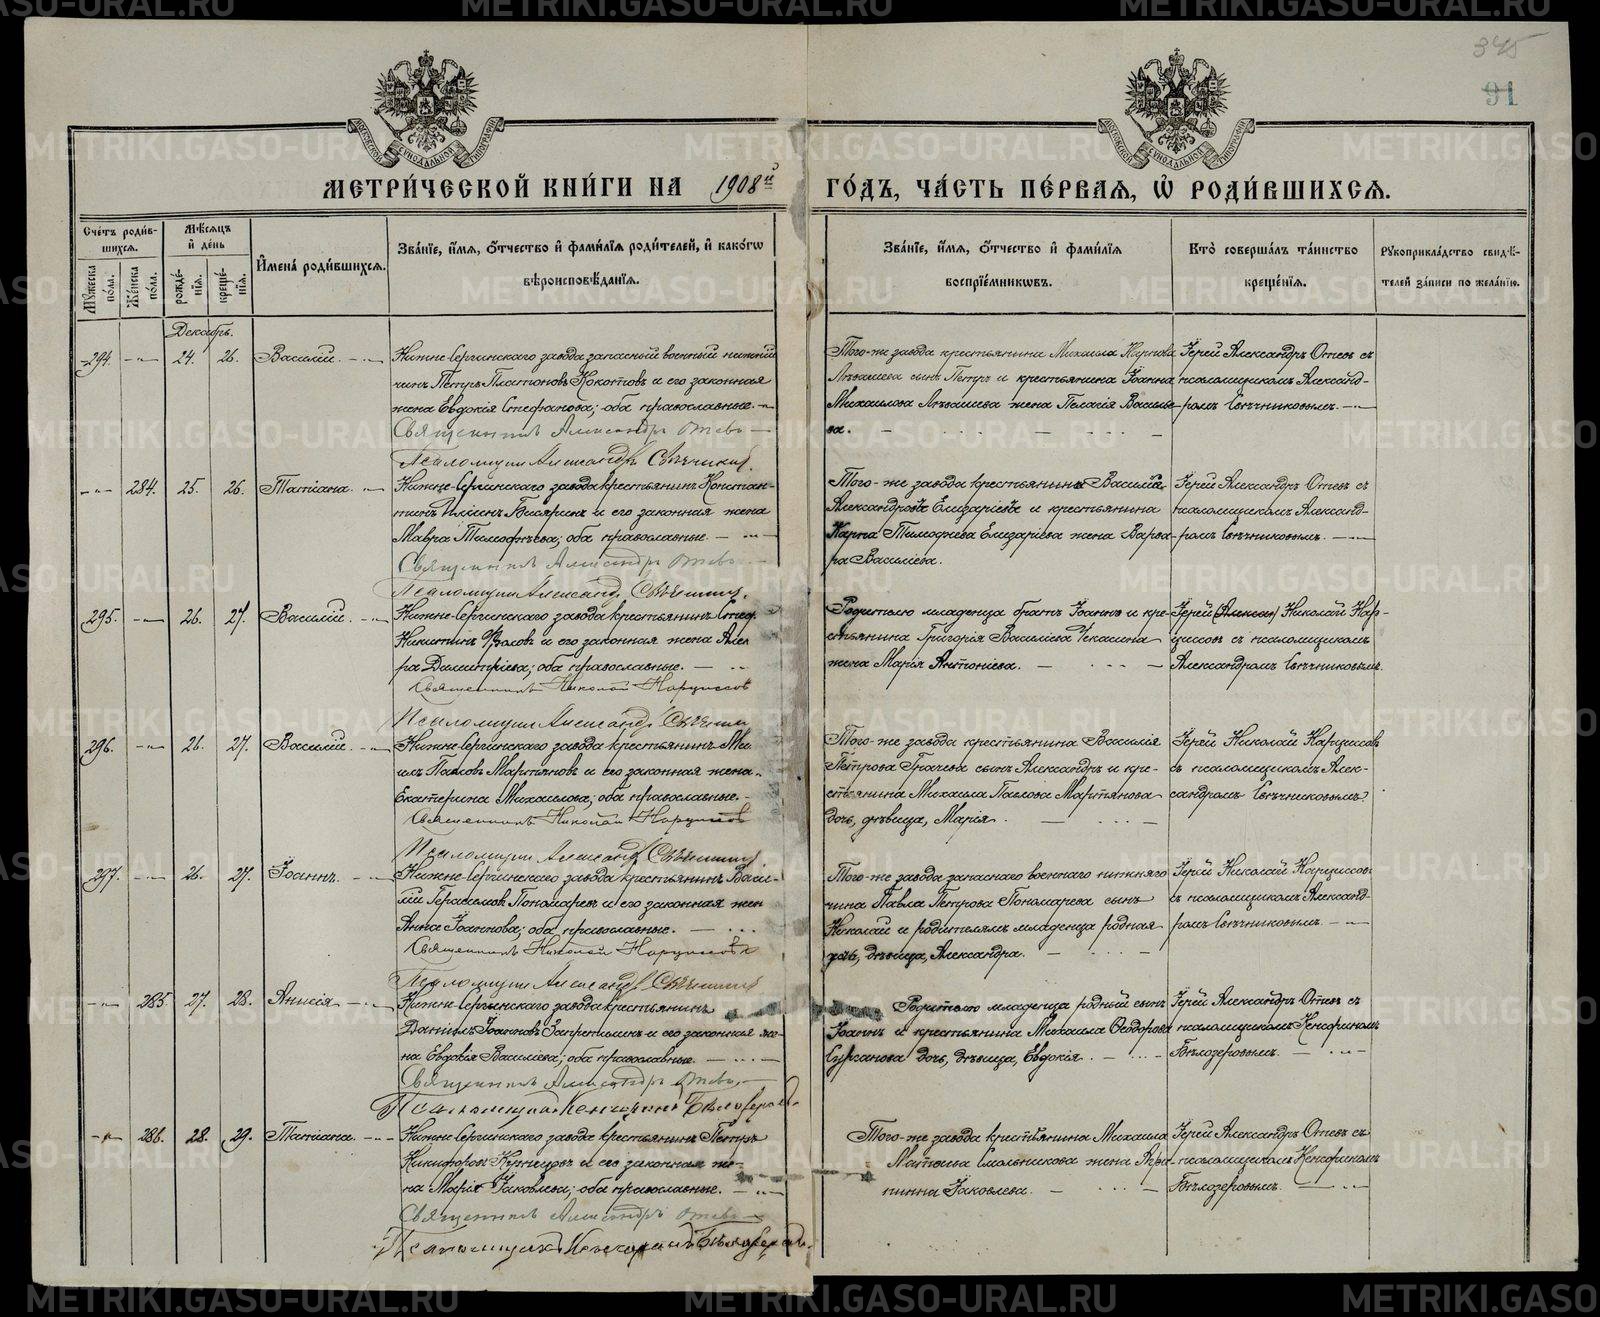 345
91
МЕТРИ́ЧЕСКОЙ КНИ́ГИ НА 1908й ГО́ДЪ, ЧА́СТЬ ПЕ́РВАЯ, Ѡ РОДИ́ВШИХСЯ.
Счетъ роди́вшихся.
Мужеска по́ла.
Же́нска по́ла.
Мѣсяцъ и де́нь
рожде́нїя.
креще́нїя.
Имена́ роди́вшихся.
Зва́нїе, и́мя, о́тчество и фами́лїя роди́телей, и како́гѡ
вѣроисповѣ́данїя.
Зва́нїе, и́мя, о́тчество и фами́лїя
воспрїе́мникѡвъ.
Кто̀ соверша́лъ та́инство
креще́нїя.
Рукоприкла́дство свидѣ́телей за́писи по жела́нїю.
Декабрь.
294. 24. 26. Василій.
Нижне-Сергинскаго завода запасный военный нижній
чинъ Петръ Платоновъ Кокотовъ и его законная
жена Евдокія Стефанова; оба православные.
Священникъ Александръ Отевъ
Псаломщикъ Александръ Свѣчниковъ
Того-же завода крестьянина Михаила Карпова
сынъ Петръ и крестьянина Іоанна
Михаилова жена Пелагія Василье-
ва.
Іерей Александръ Отевъ съ
псаломщикомъ Александ-
ромъ Свѣчниковымъ.
284. 25. 26. Татіана.
Нижне-Сергинскаго завода крестьянинъ Констан-
тинъ и его законная жена
Мавра Тимофѣева; оба православные.
Священникъ Александръ Отевъ
Псаломщикъ Александръ Свѣчниковъ
Того-же завода крестьянина Василія
Александрова Елизаріева и крестьянина
Карпа Тимофеева Елизаріева жена Варва-
ра Васильева.
Іерей Александръ Отевъ съ
псаломщикомъ Александ-
ромъ Свѣчниковымъ.
295. 26. 27. Василій.
Нижне-Сергинскаго завода крестьянинъ Стеф.
Никитинъ и его законная жена
Димитріева; оба православные.
Священникъ Николай Нарциссовъ
Псаломщикъ Александръ Свѣчниковъ
Родителю младенца братъ Іоаннъ и кре-
стьянина Григорія Васильева Чекасина
жена Марія Антоніева.
Іерей (Алексій) Николай Нар-
циссовъ съ псаломщикомъ
Александромъ Свѣчниковымъ.
296. 26. 27. Василій.
Нижне-Сергинскаго завода крестьянинъ Ми-
илъ Павловъ Мартьяновъ и его законная жена
Екатерина Михаилова; оба православные.
Священникъ Николай Нарциссовъ
Псаломщикъ Александръ Свѣчниковъ
Того-же завода крестьянина Василія
Петрова Грачева сынъ Александръ и кре-
стьянина Михаила Павлова Мартьянова
дочь, дѣвица, Марія.
Іерей Николай Нарциссовъ
съ псаломщикомъ Алек-
сандромъ Свѣчниковымъ.
297. 26. 27. Іоаннъ.
Нижне-Сергинскаго завода крестьянинъ Васи-
лій Герасимовъ Пономаревъ и его законная жен
Анна Іоаннова; оба православные.
Священникъ Николай Нарциссовъ
Псаломщикъ Александръ Свѣчниковъ
Того-же завода запаснаго военнаго нижняго
чина Павла Петрова Пономарева сынъ
Николай и родителямъ младенца родная
дочь, дѣвица, Александра.
Іерей Николай Нарциссовъ
съ псаломщикомъ Александ-
ромъ Свѣчниковымъ.
285. 27. 28. Анисія
Нижне-Сергинскаго завода крестьянинъ
Даніилъ Іоанновъ и его законная же-
на Евдокія Васильева; оба православные.
Священникъ Александръ Отевъ
Псаломщикъ Ксенофонтъ Бѣлозеровъ.
Родителю младенца родный сынъ
Іоаннъ и крестьянина Михаила Ѳеодорова
Сурганова дочь, дѣвица, Евдокія.
Іерей Александръ Отевъ съ
псаломщикомъ Ксенофонтомъ
Бѣлозеровымъ.
286. 28. 29. Татіана.
Нижне-Сергинскаго завода крестьянинъ Петръ
Никифоровъ Кузнецовъ и его законная же-
на Марія Іаковлева; оба православные.
Священникъ Александръ Отевъ
Псаломщикъ Ксенофонтъ Бѣлозеровъ.
Того-же завода крестьянина Михаила
Матвеева Смольникова жена Агри-
пина Іаковлева.
Іерей Александръ Отевъ съ
псаломщикомъ Ксенофонтомъ
Бѣлозеровымъ.
METRIKI.GASO-URAL.RU